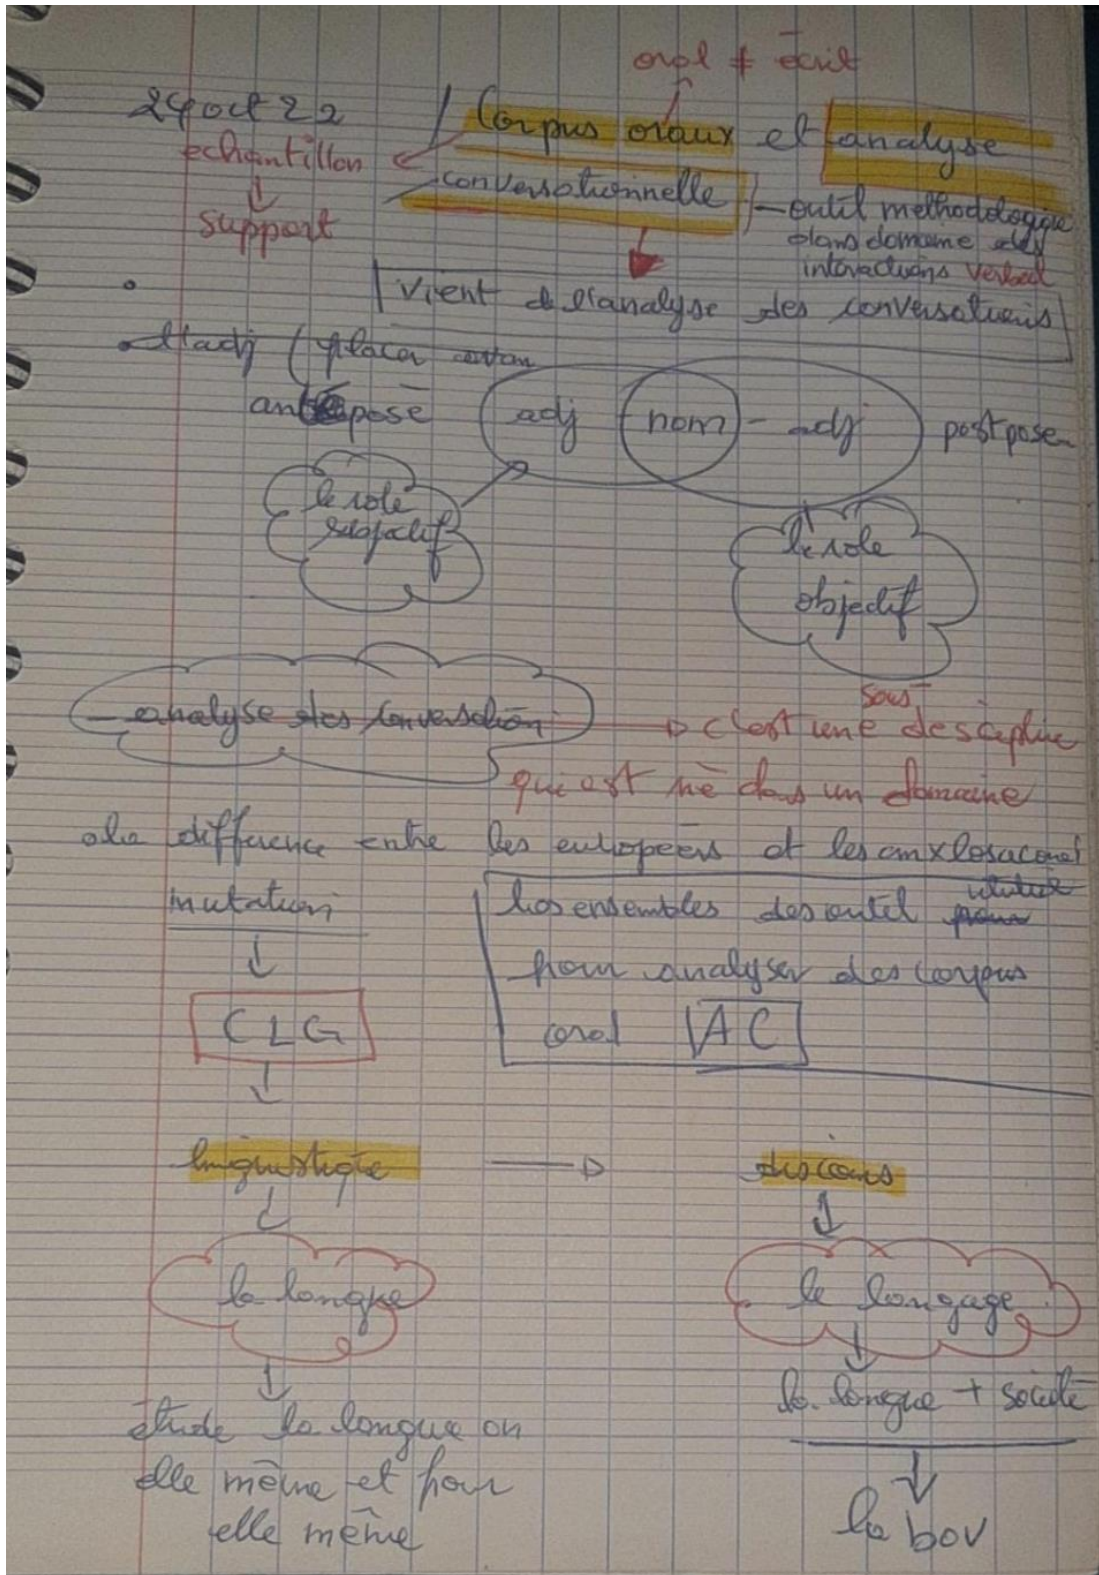 oral ≠ écrit
24 oct 22
/ Corpus oraux et analyse
echantillon
conversationnelle
outil methodologique
support
dans domaine des
interactions verbal
vient de l'analyse des conversations
l'adj ( placer
antéposé
adj
nom - adj
postposer
le role
le role
objectif
sous
analyse des conversation
c'est une descipline
qui est né dans un domaine
la différence entre les européens et les anxlosacones
mutation
les ensembles des outil
pour analyser des corpus
CLG
oral AC
linguistique
discours
la langue
le langage
la langue + société
étude la langue en
elle même et pour
elle même
la bov